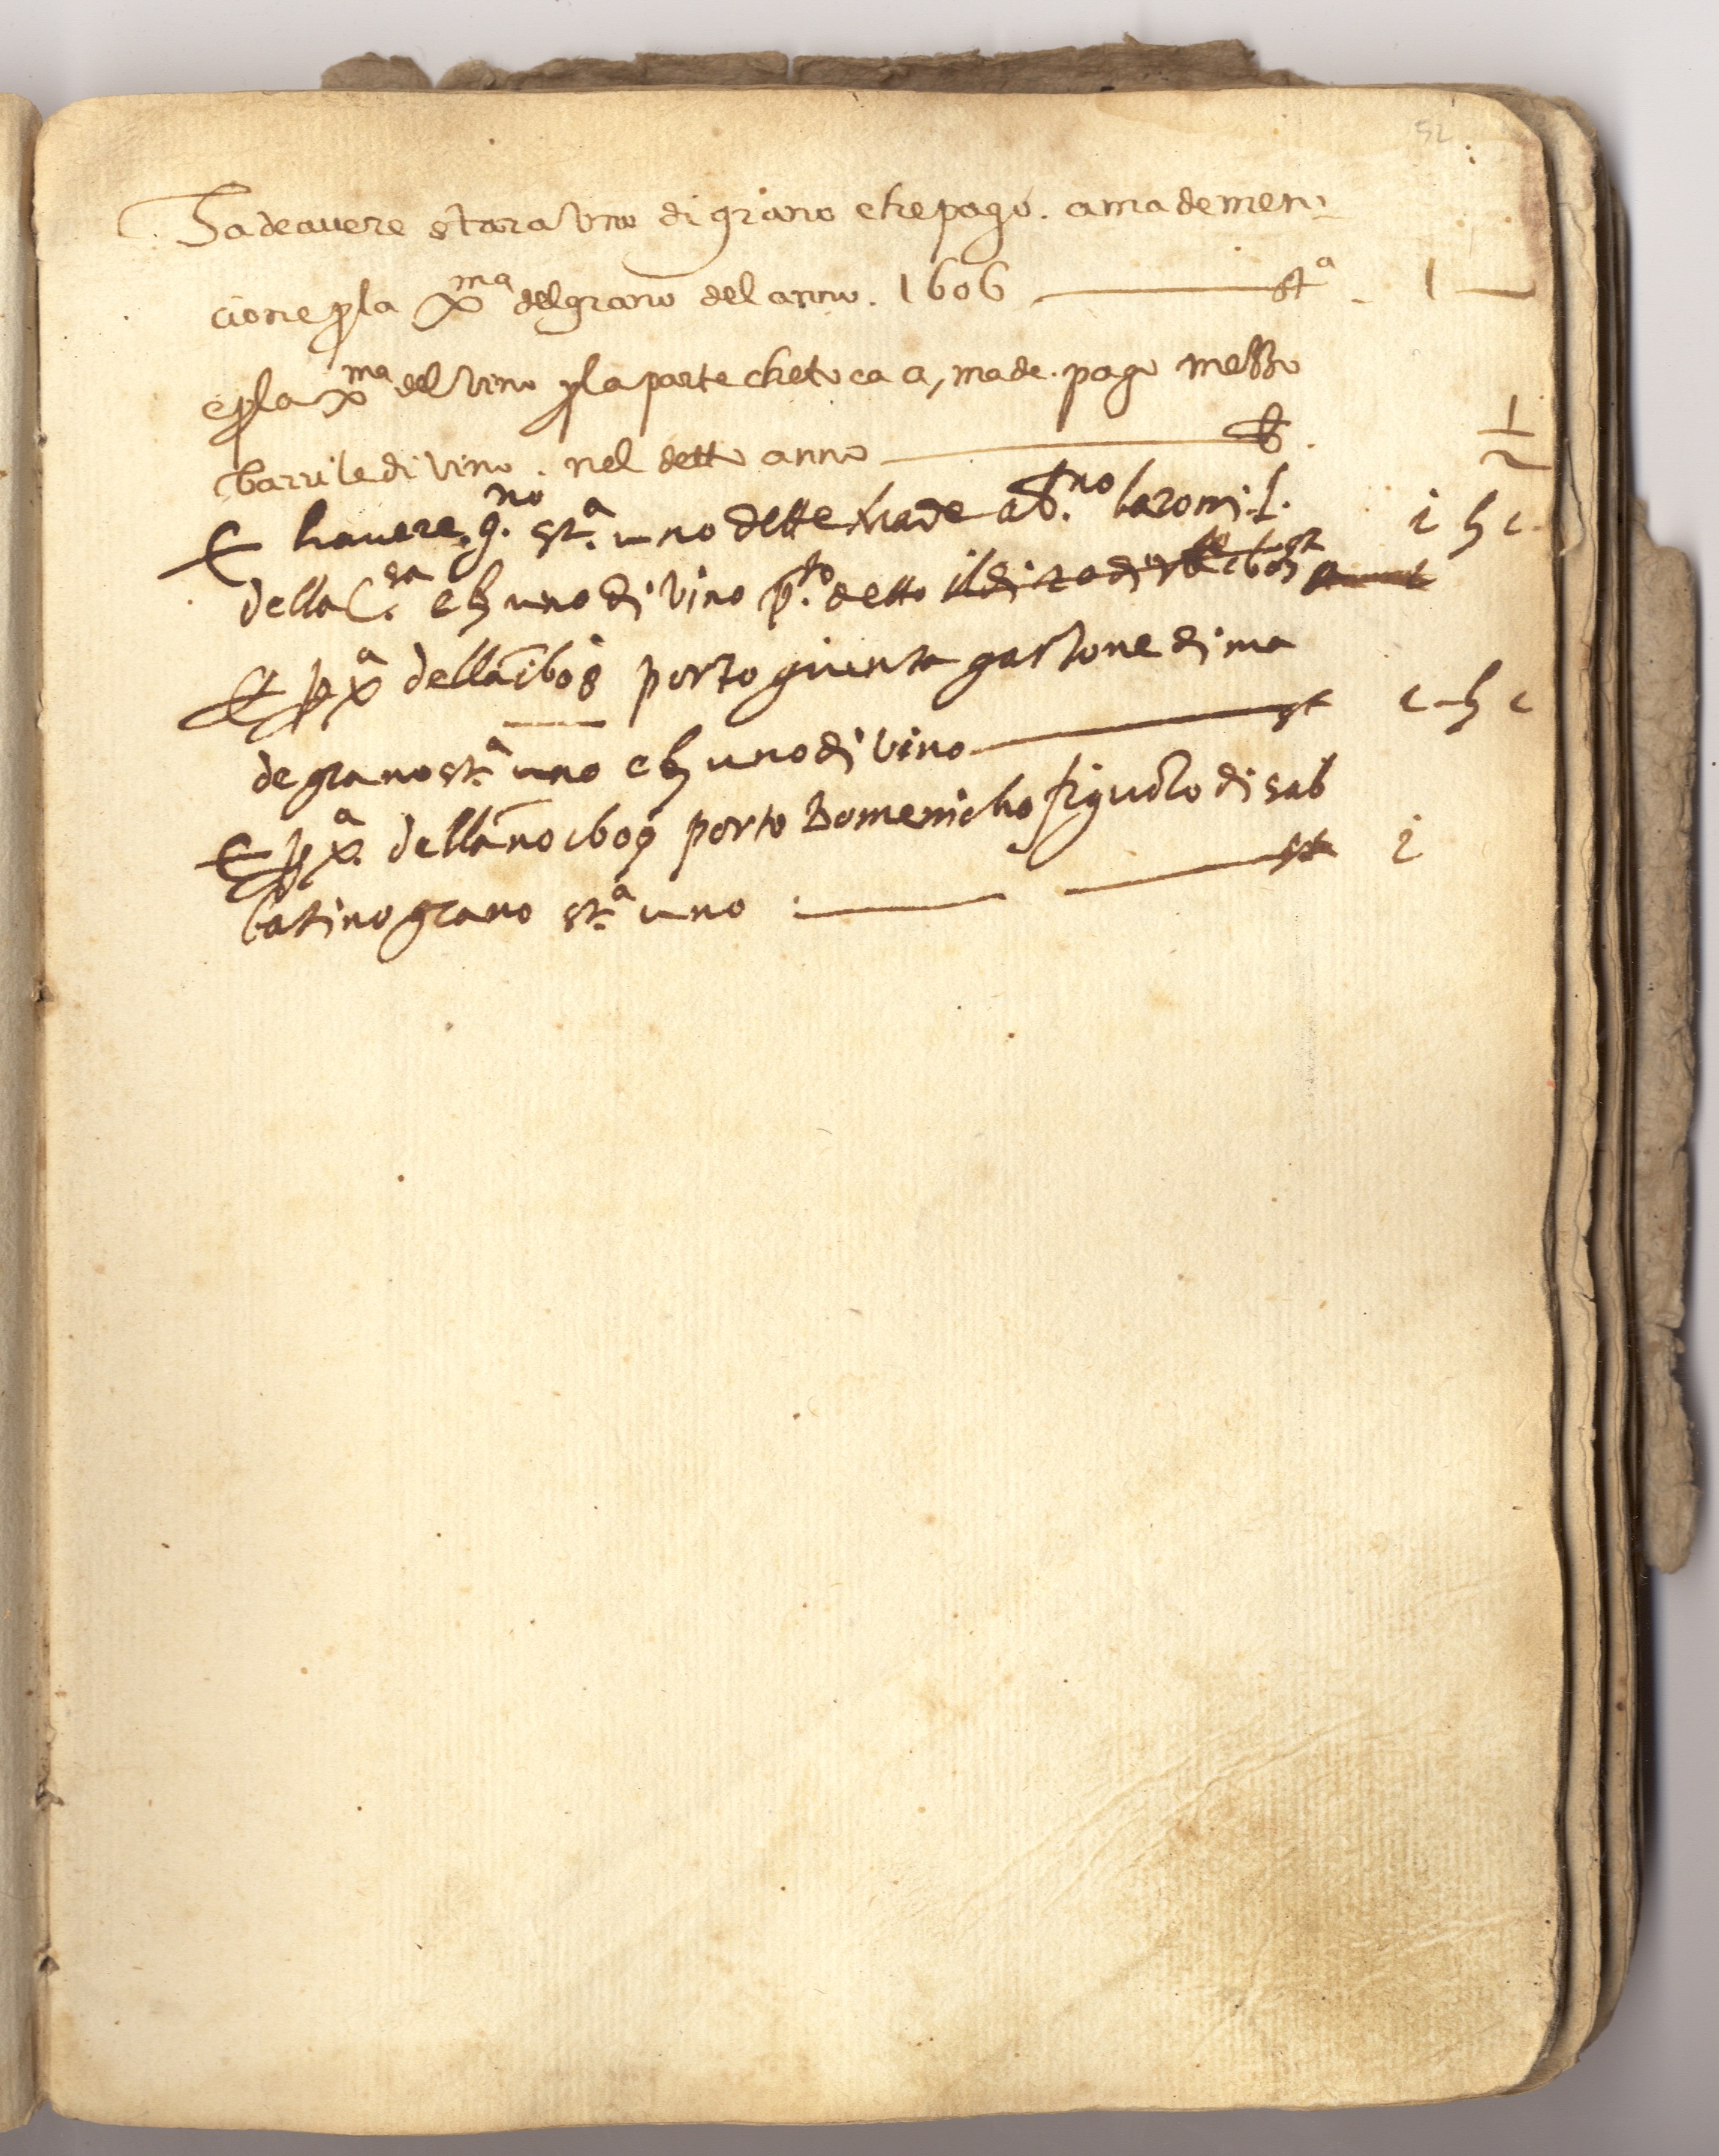 52
Sa de avere stara uno di grano che pago. a ma demen
cione p la xma del grano del anno. 1606 sta. 1
e p la xma del vino p la parte che toca a, made. pago messo
barrile di vino. nel detto anno b. 1/2
E havere. g.no st.a uno dette made a b.no baroni. i b i
della C.sa e b uno di vino p.to detto
E p xa della 1608 porto giunta gastone di ma
de grano st.a uno e b uno di vino st i b i
E p xa. della no 1609 porto Domenicho figuolo di sab
batino grano st.a uno st i